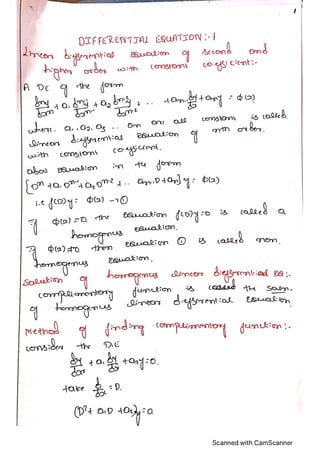 1
DIFFERENTIAL EQUATION :- 1
Linear differential equation of second and
higher order with constant co-efficient :-
A DE of the form
dⁿy/dxⁿ + a₁ dⁿ⁻¹y/dxⁿ⁻¹ + a₂ dⁿ⁻²y/dxⁿ⁻² + .. + aₙ₋₁ dy/dx + aₙy = φ(x)
where a₁, a₂, a₃ .. an are all constants is called
linear differential equation of nth order.
with constant co-efficient.
above equation in the form
[Dⁿ + a₁Dⁿ⁻¹ + a₂Dⁿ⁻² + .. aₙ₋₁D + aₙ] y = φ(x)
i.e f(D)y = φ(x) → ①
If φ(x) = 0 the equation f(D)y = 0 is called a
homogenus equation.
If φ(x) ≠ 0 then equation ① is called non.
homogenus equation.
Solution of homogenus linear differential EQ :-
complimentary function is the soln.
of homogenus linear differential equation.
Method of finding complimentary function :-
consider the DE
d²y/dx² + a₁ dy/dx + a₂y = 0.
take d/dx = D.
(D² + a₁D + a₂)y = 0
Scanned with CamScanner